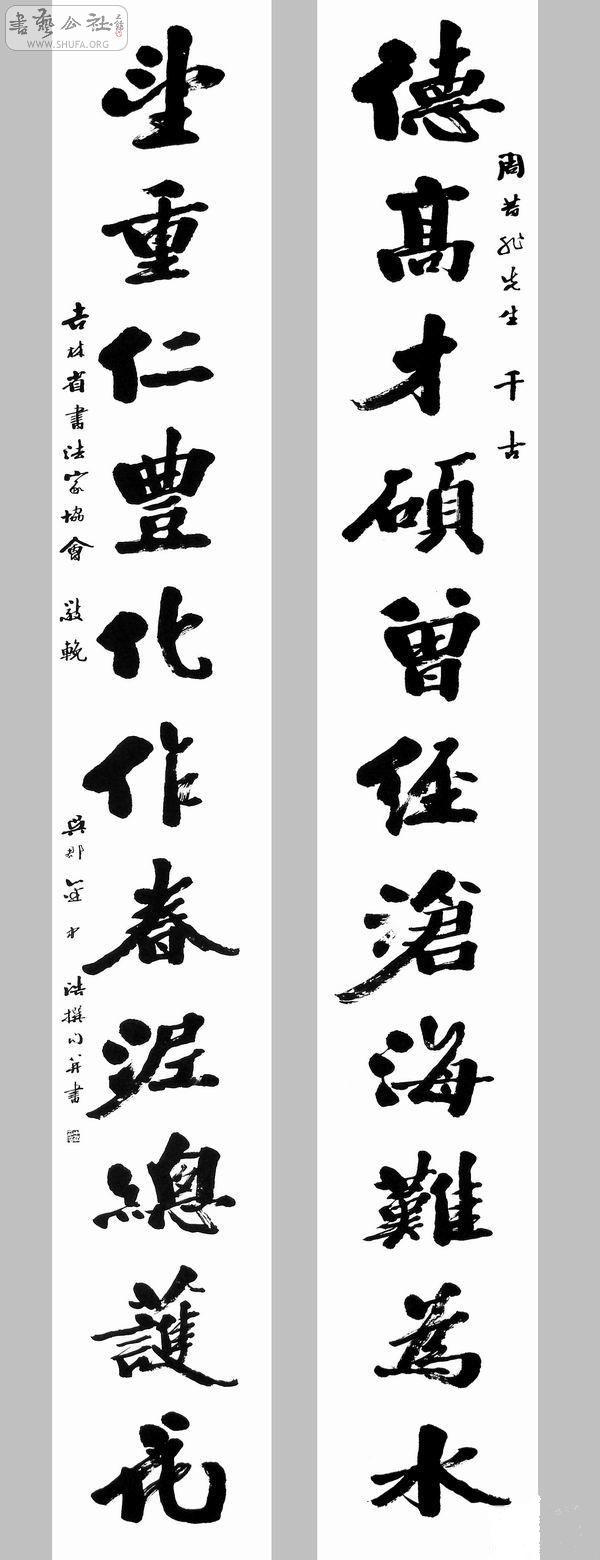 書藝公社
WWW.SHUFA.ORG
周昔非先生 千古
德髙才碩曾經滄海難為水
望重仁豐化作春泥總護花
吉林省書法家協會 敬輓
吳郡 金中浩撰句并書